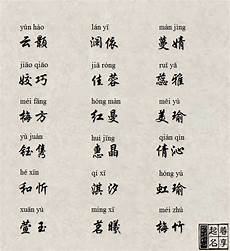 yún hào lán yī màn jìng
云颢 澜依 蔓婧
jiāo qiǎo jiā róng ruǐ yǎ
姣巧 佳蓉 蕊雅
méi fāng hóng màn měi yú
梅方 红曼 美瑜
yù juàn huì jīng qiàn qìn
钰隽 惠晶 倩沁
hé xīn qí xī hóng yú
和忻 淇汐 虹瑜
xuān yù míng xī méi zhú
萱玉 茗曦 梅竹
尊享起名